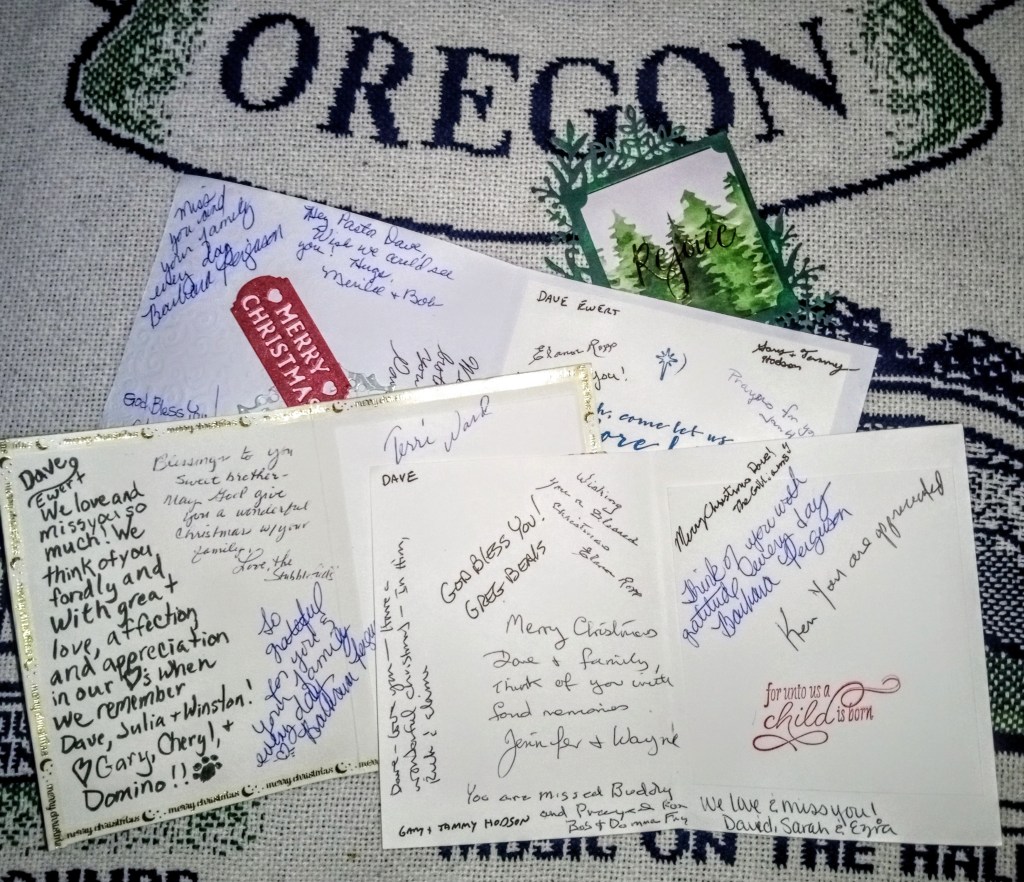 OREGON
Rejoice
miss
you and
your family
every day
Barbara Ferguson
Hey Pastor Dave,
Wish we could see
you! Hugs,
+ Bob
MERRY
CHRISTMAS
God Bless You!
DAVE EWERT
Elanor Ropp
you!
Gary & Tammy
Hodson
Prayers for you
come let us
merry christmas
Terri Ward
Dave
Ewert
We love and
miss you so
much! We
think of you
fondly and
with great
love, affection
and appreciation
in our ♡s when
we remember
Dave, Julia + Winston!
♡ Gary, Cheryl, +
Domino!!
Blessings to you
sweet brother-
May God give
you a wonderful
Christmas w/your
family.
Love, the
So
grateful
for you &
your family
every day
Barbara
merry christmas
merry christmas
merry christmas
DAVE
GOD BLESS YOU!
GREG BEALS
Wishing
you a Blessed
Christmas
Elanor Ropp
Merry Christmas
Dave & family,
Think of you with
fond memories.
Jennifer & Wayne
Dave - love you - have a
wonderful Christmas - in Him,
You are missed Buddy
and Prayed For
Bob & Donna Fry
GARY & TAMMY HODSON
Merry Christmas Dave!
Think of you with
gratitude every day
Barbara Ferguson
Ken You are appreciated
for unto us a
child is born
We love & miss you!
David, Sarah & Ezra
MUSIC ON THE HAL